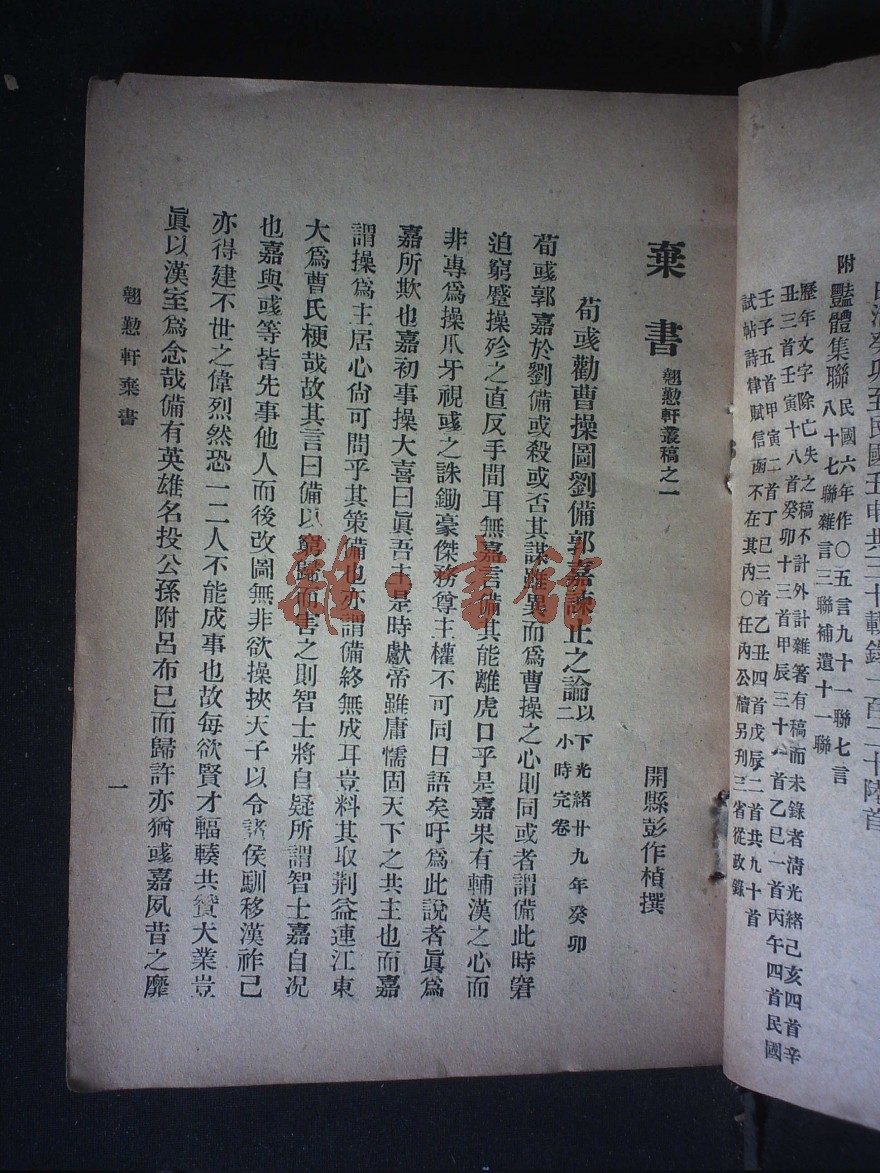 附 豔體集聯 民國六年作〇五言九十一聯七言
八十七聯雜言三聯補遺十一聯
歷年文字除亡失之稿不計外計雜著有稿而未錄者清光緒己亥四首辛
丑三首壬寅十八首癸卯十三首甲辰三十八首乙巳一首丙午四首民國
壬子五首甲寅二首丁巳三首乙丑四首戊辰二首共九十首
試帖詩律賦信函不在其內〇任內公牘另刊三省從政錄
棄書 翹懃軒叢稿之一
開縣彭作楨撰
荀彧勸曹操圖劉備郭嘉諫止之論 以下光緒廿九年癸卯
二小時完卷
荀彧郭嘉於劉備或殺或否其謀雖異而爲曹操之心則同或者謂備此時窘
迫窮蹙操殄之直反手間耳無嘉言備其能離虎口乎是嘉果有輔漢之心而
非專爲操爪牙視彧之誅鋤豪傑務尊主權不可同日語矣吁爲此說者眞爲
嘉所欺也嘉初事操大喜曰眞吾主是時獻帝雖庸懦固天下之共主也而嘉
謂操爲主居心尙可問乎其策備也亦謂備終無成耳豈料其取荆益連江東
大爲曹氏梗哉故其言曰備以窮歸而害之則智士將自疑所謂智士嘉自况
也嘉與彧等皆先事他人而後改圖無非欲操挾天子以令諸侯馴移漢祚己
亦得建不世之偉烈然恐一二人不能成事也故每欲賢才輻輳共贊大業豈
眞以漢室爲念哉備有英雄名投公孫附呂布已而歸許亦猶彧嘉夙昔之靡
翹懃軒棄書
一
雜·書館